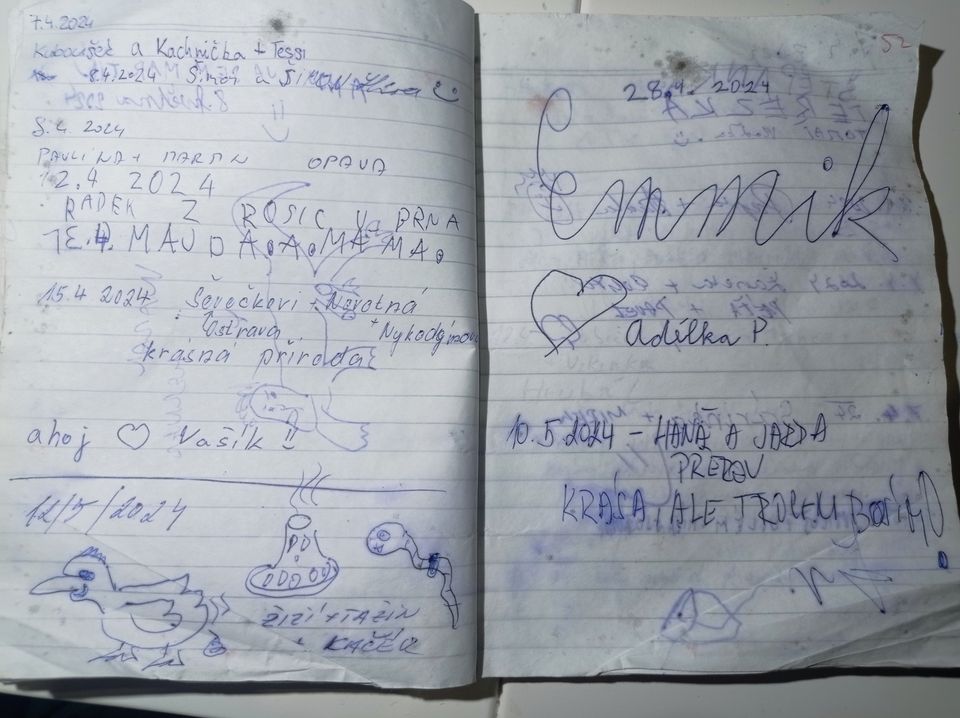 7.4.2024
a Kachnička + Tessi
8.4.2024 Šimon a
S.4. 2024
PAVLINA + MARTIN OPAVA
12.4 2024
RADEK Z ROSIC U BRNA
MAUDA.A.MAMA.
15.4 2024 Ševečkovi + Novotná
Ostrava + Nykodýmovi
krásná příroda
ahoj ♡ Vašík !!
12/5/2024
ŽIŽI + TAŽIN
+ KAČER
52
28.4. 2024
Emmik
Adélka P.
10.5.2024 - HANA A JAZDA
PREŠOV
KRÁSA, ALE TROCHU